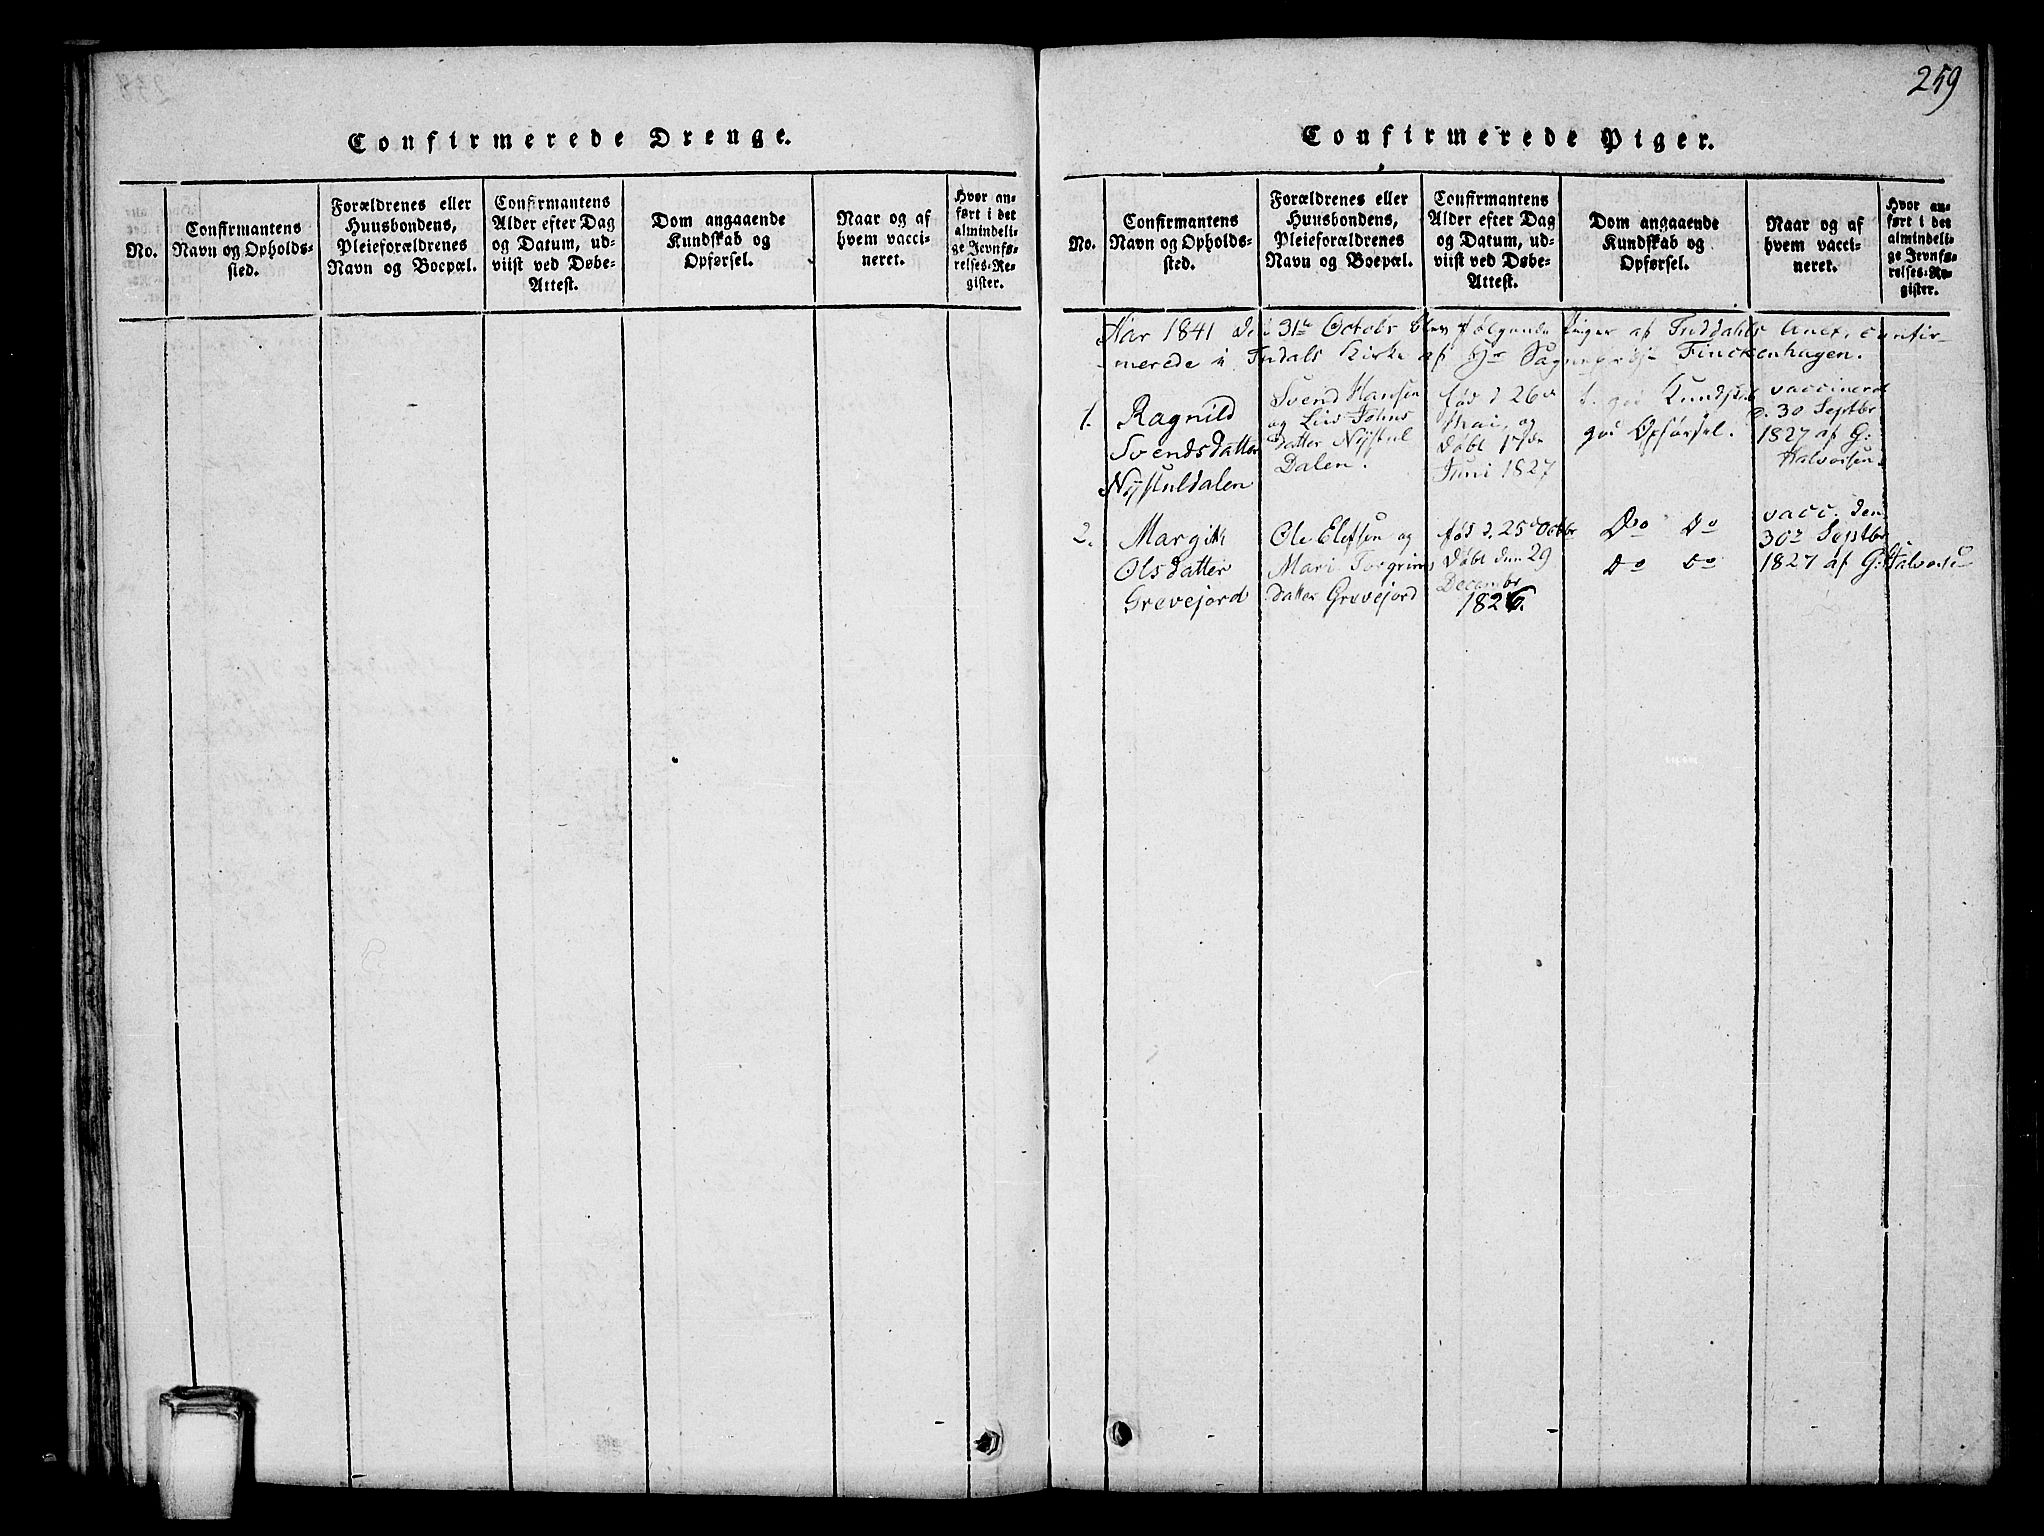 259
Confirmerede Drenge.
No.
Confirmantens
Navn og Opholds-
sted.
Forældrenes eller
Huusbondens,
Pleieforældrenes
Navn og Boepæl.
Confirmantens
Alder efter Dag
og Datum, ud-
viist ved Døbe-
Attest.
Dom angaaende
Kundskab og
Opførsel.
Naar og af
hvem vacci-
neret.
Hvor an-
ført i det
almindeli-
ge Jevnfø-
relses-Re-
gister.
Confirmerede Piger.
No.
Confirmantens
Navn og Opholds-
sted.
Forældrenes eller
Huusbondens,
Pleieforældrenes
Navn og Boepæl.
Confirmantens
Alder efter Dag
og Datum, ud-
viist ved Døbe-
Attest.
Dom angaaende
Kundskab og
Opførsel.
Naar og af
hvem vacci-
neret.
Hvor an-
ført i det
almindeli-
ge Jevnfø-
relses-Re-
gister.
Aar 1841 den 31te Octobr blev følgende Piger af Anex, confir-
merede i Kirke af Hr Finckenhagen.
1.
Ragnild
Svendsdatter
Nystuldalen
Svend Hansen
og Liv Johns
datter Nystul
Dalen.
fød d 26de
Mai, og
døbt 17de
Juni 1827
god Kundskab
god Opførsel.
vaccinered
d. 30 Septbr
1827 af G:
Halvorsen.
2.
Margit
Olsdatter
Grevejord
Ole Elefsen og
Mari Torgrims
datter Grevejord
fød d. 25de Octbr
døbt den 29
Decembr
1826.
Do Do
Do Do
vacc. den
30te Septbr
1827 af G: Halvorse